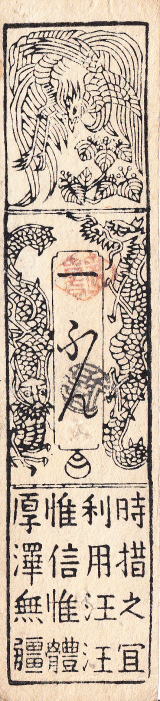 一
ふん
時措之宜
利用汪汪
惟信惟體
厚澤無疆